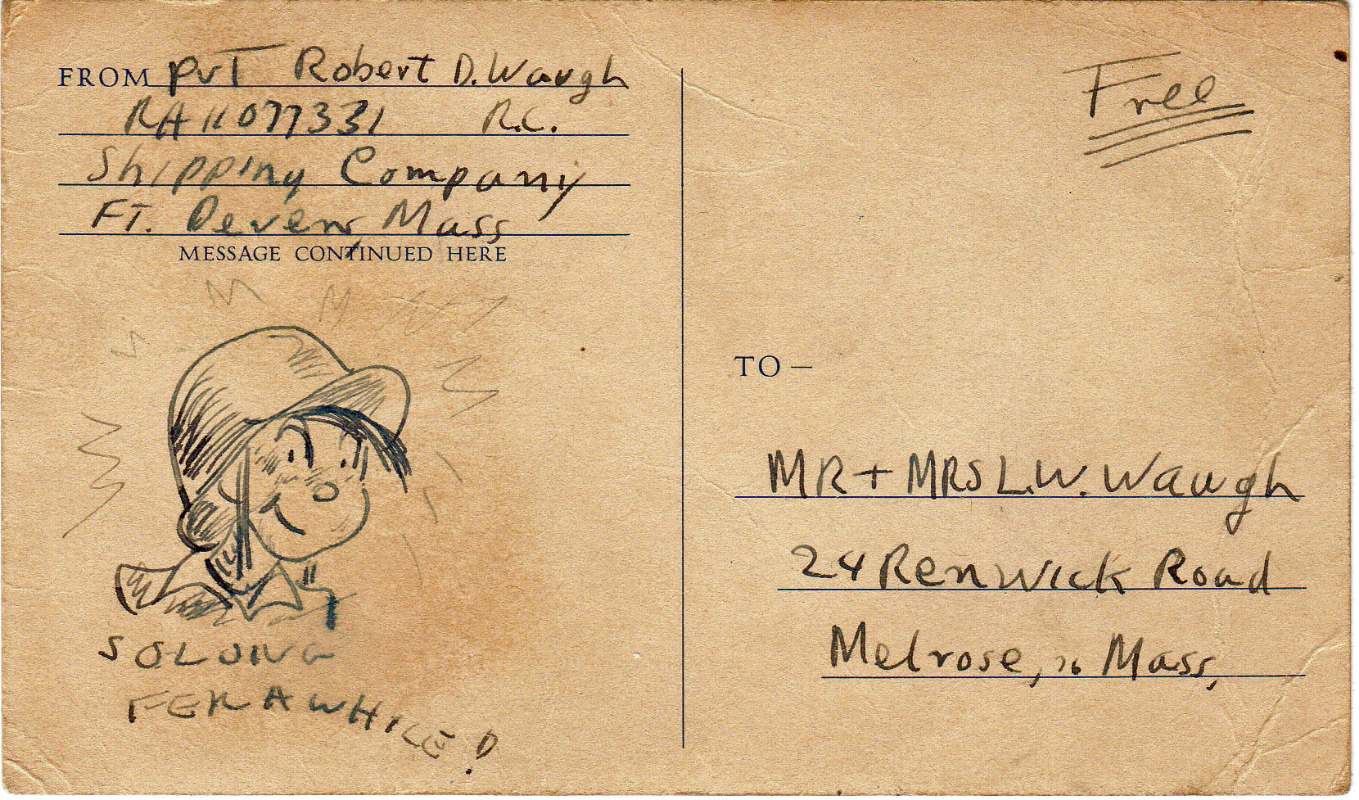 FROM Pvt Robert D. Waugh
RA 11077331 R.C.
Shipping Company
FT. Devens, Mass
MESSAGE CONTINUED HERE
SO LONG
FER AWHILE!
Free
TO —
MR + MRS L.W. Waugh
24 Renwick Road
Melrose, 76 Mass,